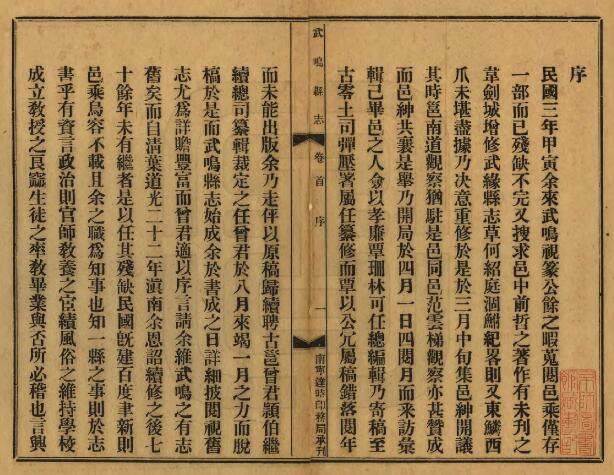 序
民國三年甲寅余來武鳴視篆公餘之暇蒐閱邑乘僅存
一部而已殘缺不完又搜求邑中前哲之著作有未刊之
韋劍城增修武緣縣志草何紹庭涸鮒紀畧則又東鱗西
爪未堪盡據乃決意重修於是於三月中旬集邑紳開議
其時邕南道觀察猶駐是邑同邑范雲梯觀察亦甚贊成
而邑紳共襄是舉乃開局於四月一日四閱月而來訪彙
輯已畢邑之人僉以孝廉覃珊林可任總編輯乃寄稿至
古零土司彈壓署屬任纂修而覃以公冗屬稿錯落閱年
武鳴縣志
卷首
序
一
南寧達時印務局承刊
而未能出版余乃走伻以原稿歸續聘古邕曾君穎伯繼
續總司纂輯裁定之任曾君於八月來竭一月之力而脫
稿於是而武鳴縣志始成余於書成之日詳細披閱視舊
志尤爲詳贍豐富而曾君適以序言請余維武鳴之有志
舊矣而自清葉道光二十二年滇南余恩詔續修之後七
十餘年未有繼者是以任其殘缺民國旣建百度聿新則
邑乘烏容不載且余之職爲知事也知一縣之事則於志
書乎有資言政治則官師敎養之宦績風俗之維持學校
成立敎授之良窳生徒之率敎畢業與否所必稽也言興